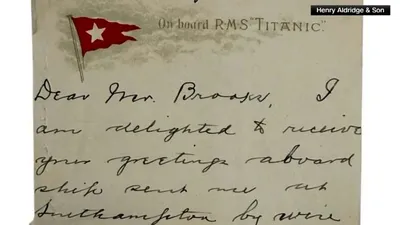 Henry Aldridge & Son
On board R.M.S "TITANIC".
Dear Mr. Brooks, I
am delighted to receive
your greetings aboard
ship sent me at
Southampton by wire